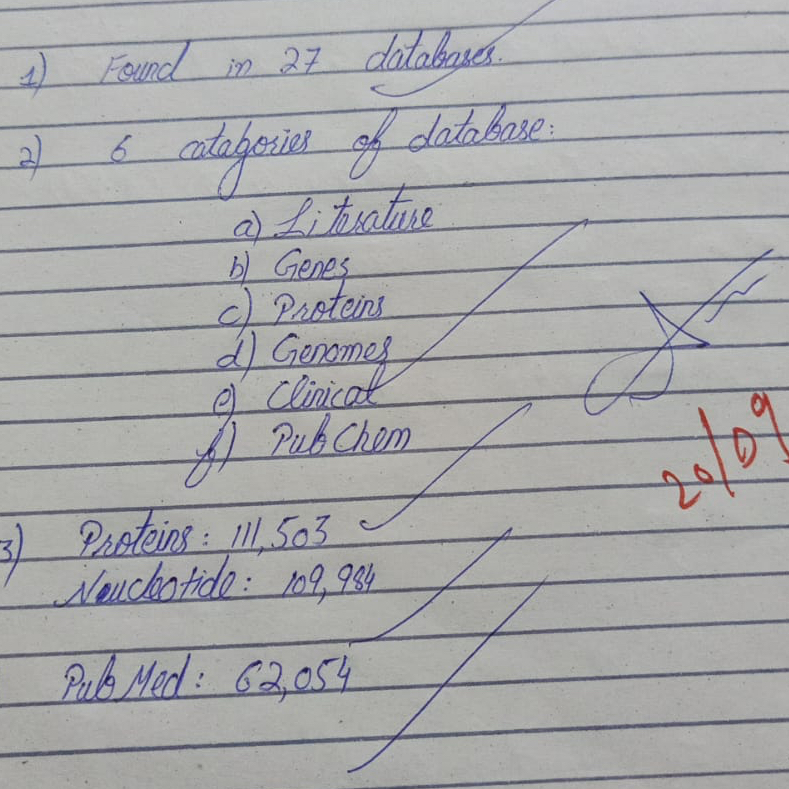 1) Found in 27 databases.
2) 6 catagories of database:
a) Literature
b) Genes
c) Proteins
d) Genomes
e) Clinical
f) PubChem
3) Proteins: 111,503
Neucleotide: 109,984
PubMed: 62,054
20/09